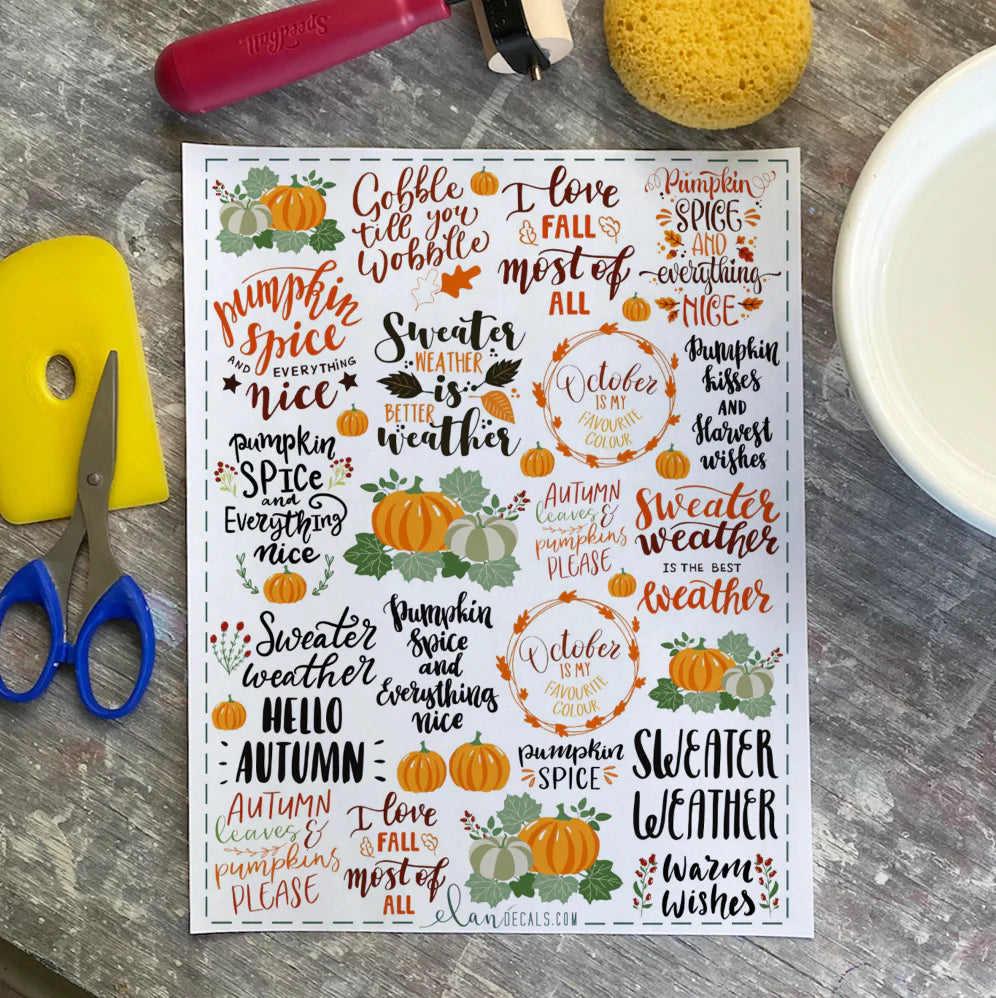 Speedball
Gobble
till you
Wobble
I love
FALL
most of
ALL
Pumpkin
SPICE
AND
everything
NICE
pumpkin
spice
AND EVERYTHING
nice
Sweater
WEATHER
is
BETTER
weather
October
IS MY
FAVOURITE
COLOUR
Pumpkin
kisses
AND
Harvest
wishes
pumpkin
SPICE
and
Everything
nice
AUTUMN
leaves &
pumpkins
PLEASE
Sweater
weather
IS THE BEST
weather
Sweater
weather
Pumpkin
Spice
and
Everything
nice
October
IS MY
FAVOURITE
COLOUR
HELLO
AUTUMN
pumpkin
SPICE
SWEATER
WEATHER
AUTUMN
leaves &
pumpkins
PLEASE
I love
FALL
most of
ALL
Warm
Wishes
elanDECALS.COM